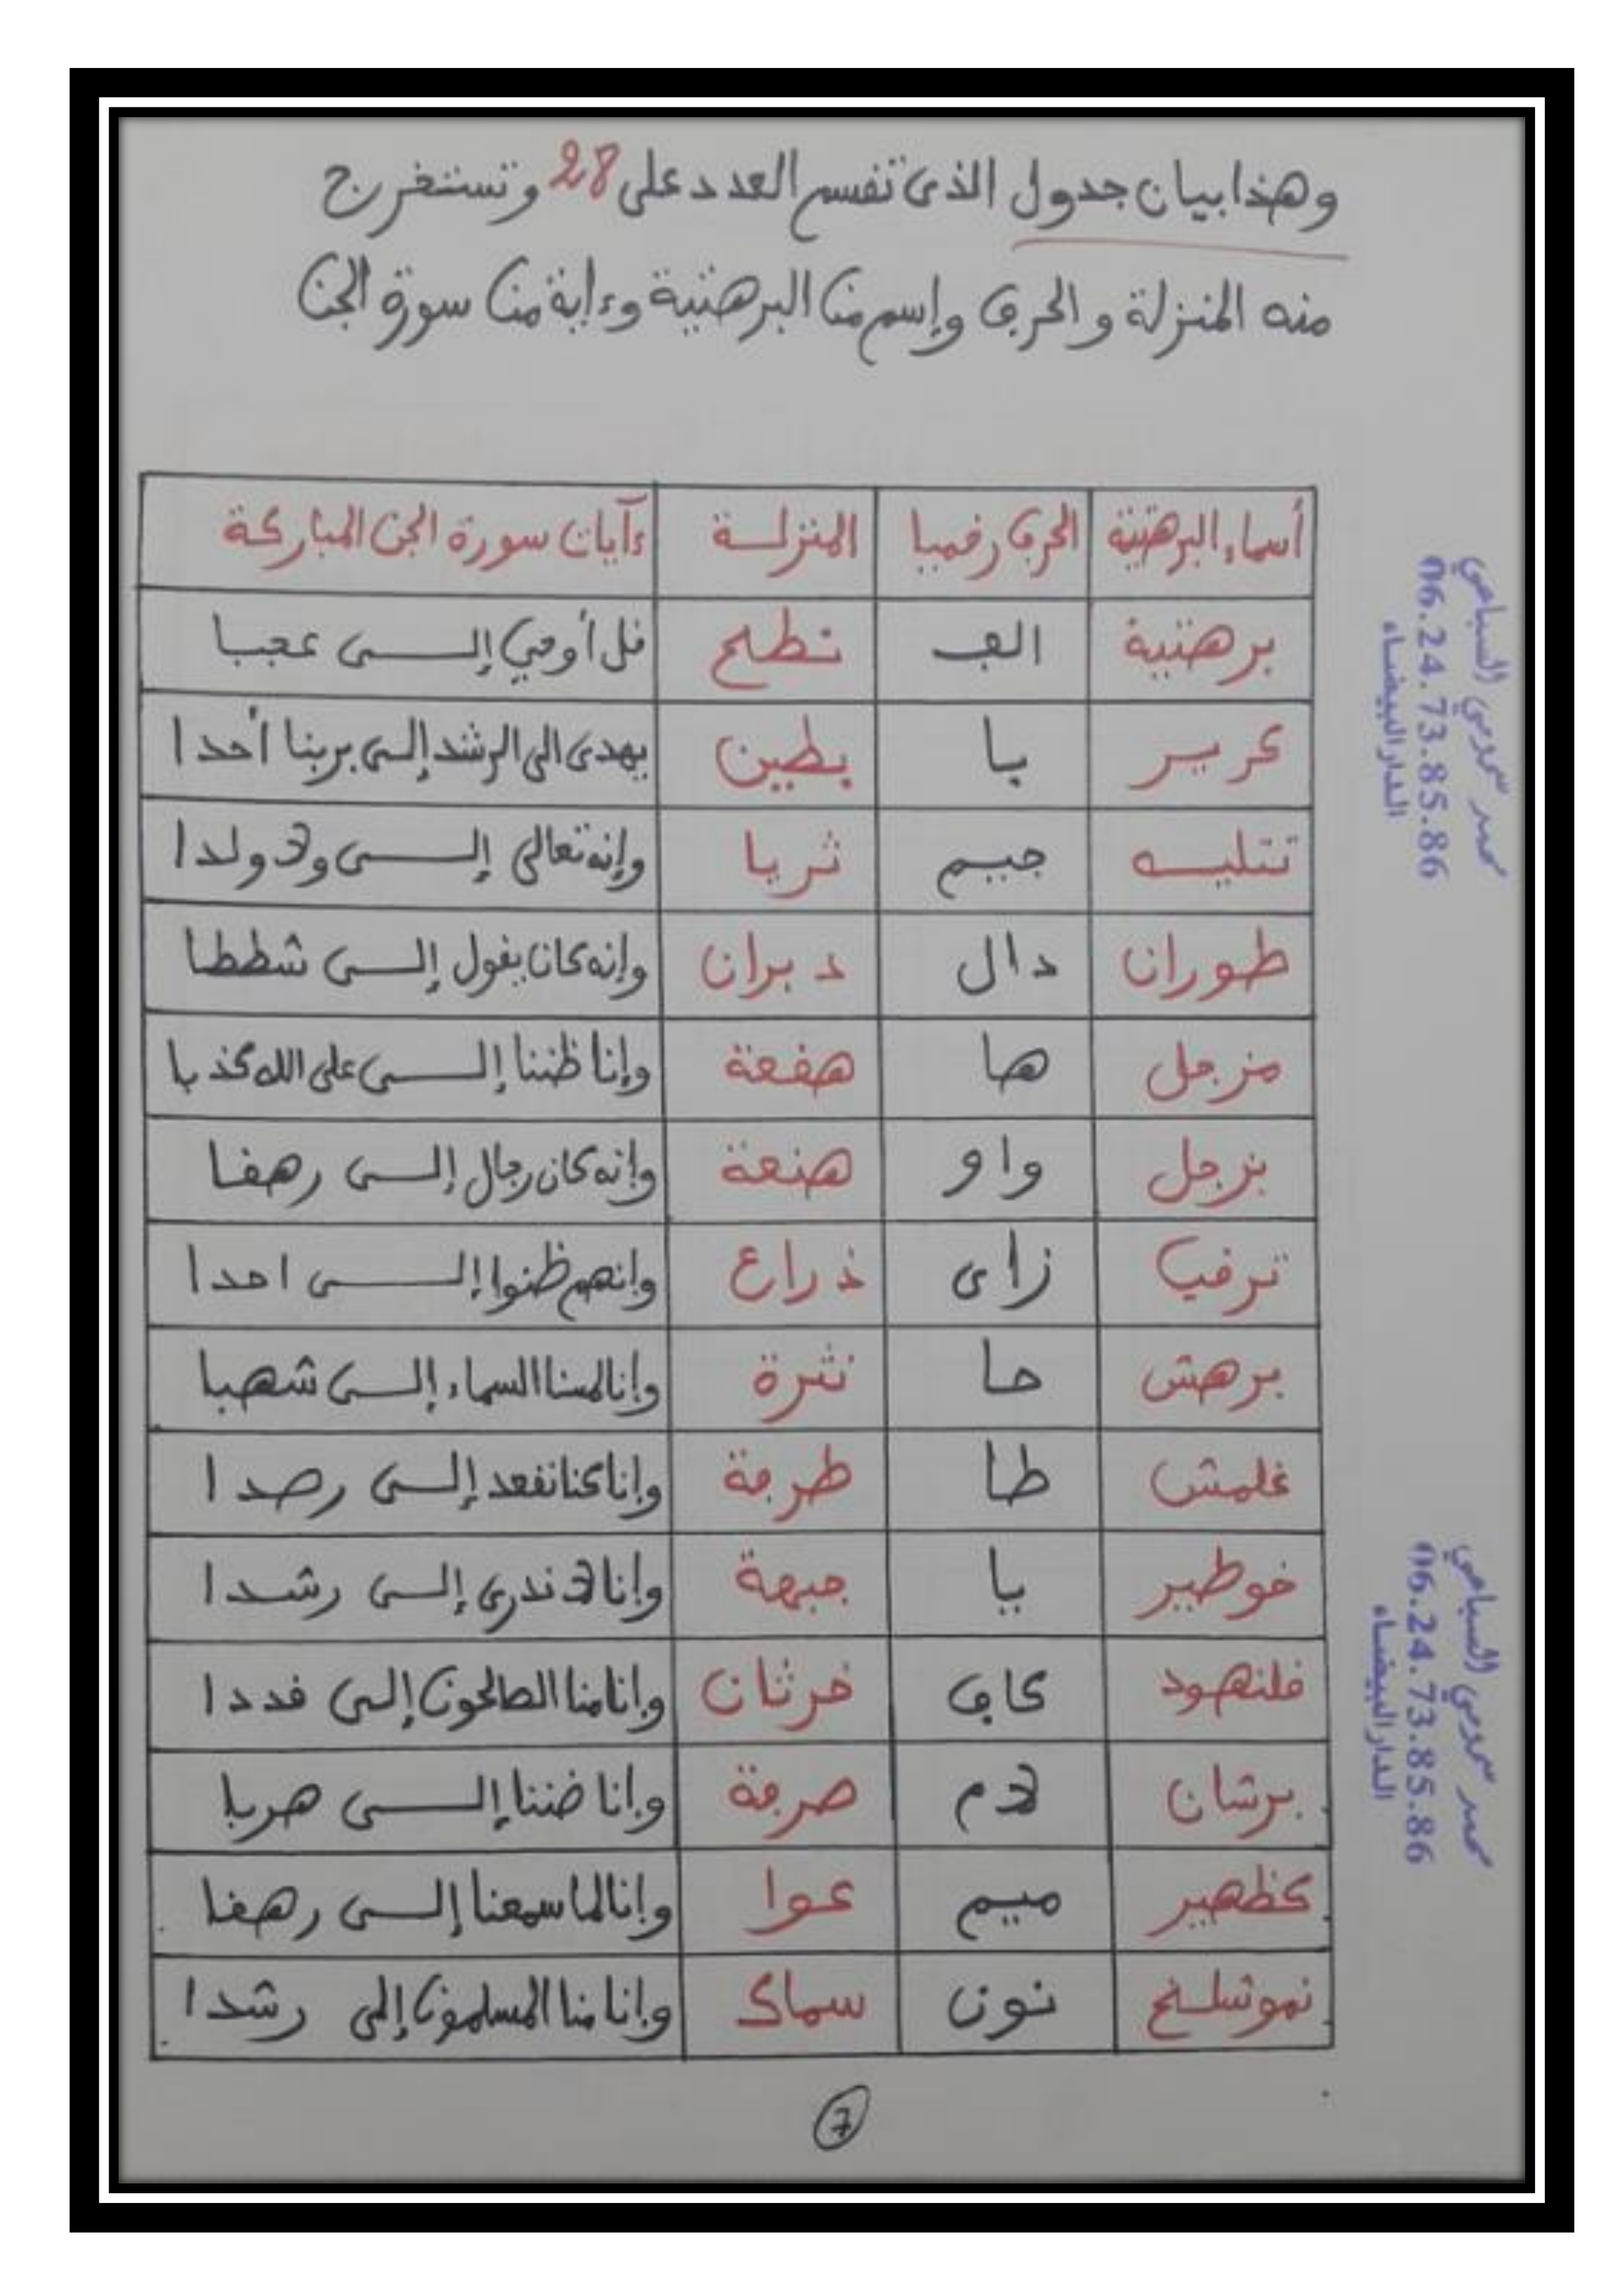 وهذا بيان جدول الذى تقسم العدد على 28 وتستخرج
منه المنزلة والحرف وإسم من البرهتية وءاية من سورة الجن
أسماء البرهتية الحرف رقميا المنزلة ءآيات سورة الجن المباركة
برهتية الف نطح قل أوحي إلى عجبا
كرير با بطين يهدى الى الرشد إلى بربنا أحدا
تتليه جيم ثريا وإنه تعالى إلى ولا ولدا
طوران دال دبران وإنه كان يقول إلى شططا
مزجل ها هقعة وإنا ظننا إلى على الله كذبا
بزجل واو هنعة وإنه كان رجال إلى رهقا
ترقب زاى ذراع وإنهم ظنوا إلى احدا
برهش حا نثرة وإنا لمسنا السماء إلى شهبا
غلمش طا طرفة وإنا كنا نقعد إلى رصدا
خوطير يا جبهة وإنا لا ندرى إلى رشدا
قلنهود كاف خرثان وإنا منا الصالحون إلى قددا
برشان لام صرفة وإنا ضننا إلى هربا
كظهير ميم عوا وإنا لما سمعنا إلى رهقا
نموشلخ نون سماك وإنا منا المسلمون إلى رشدا
7
محمد السباعي
06.24.73.85.86
الدار البيضاء
محمد السباعي
06.24.73.85.86
الدار البيضاء